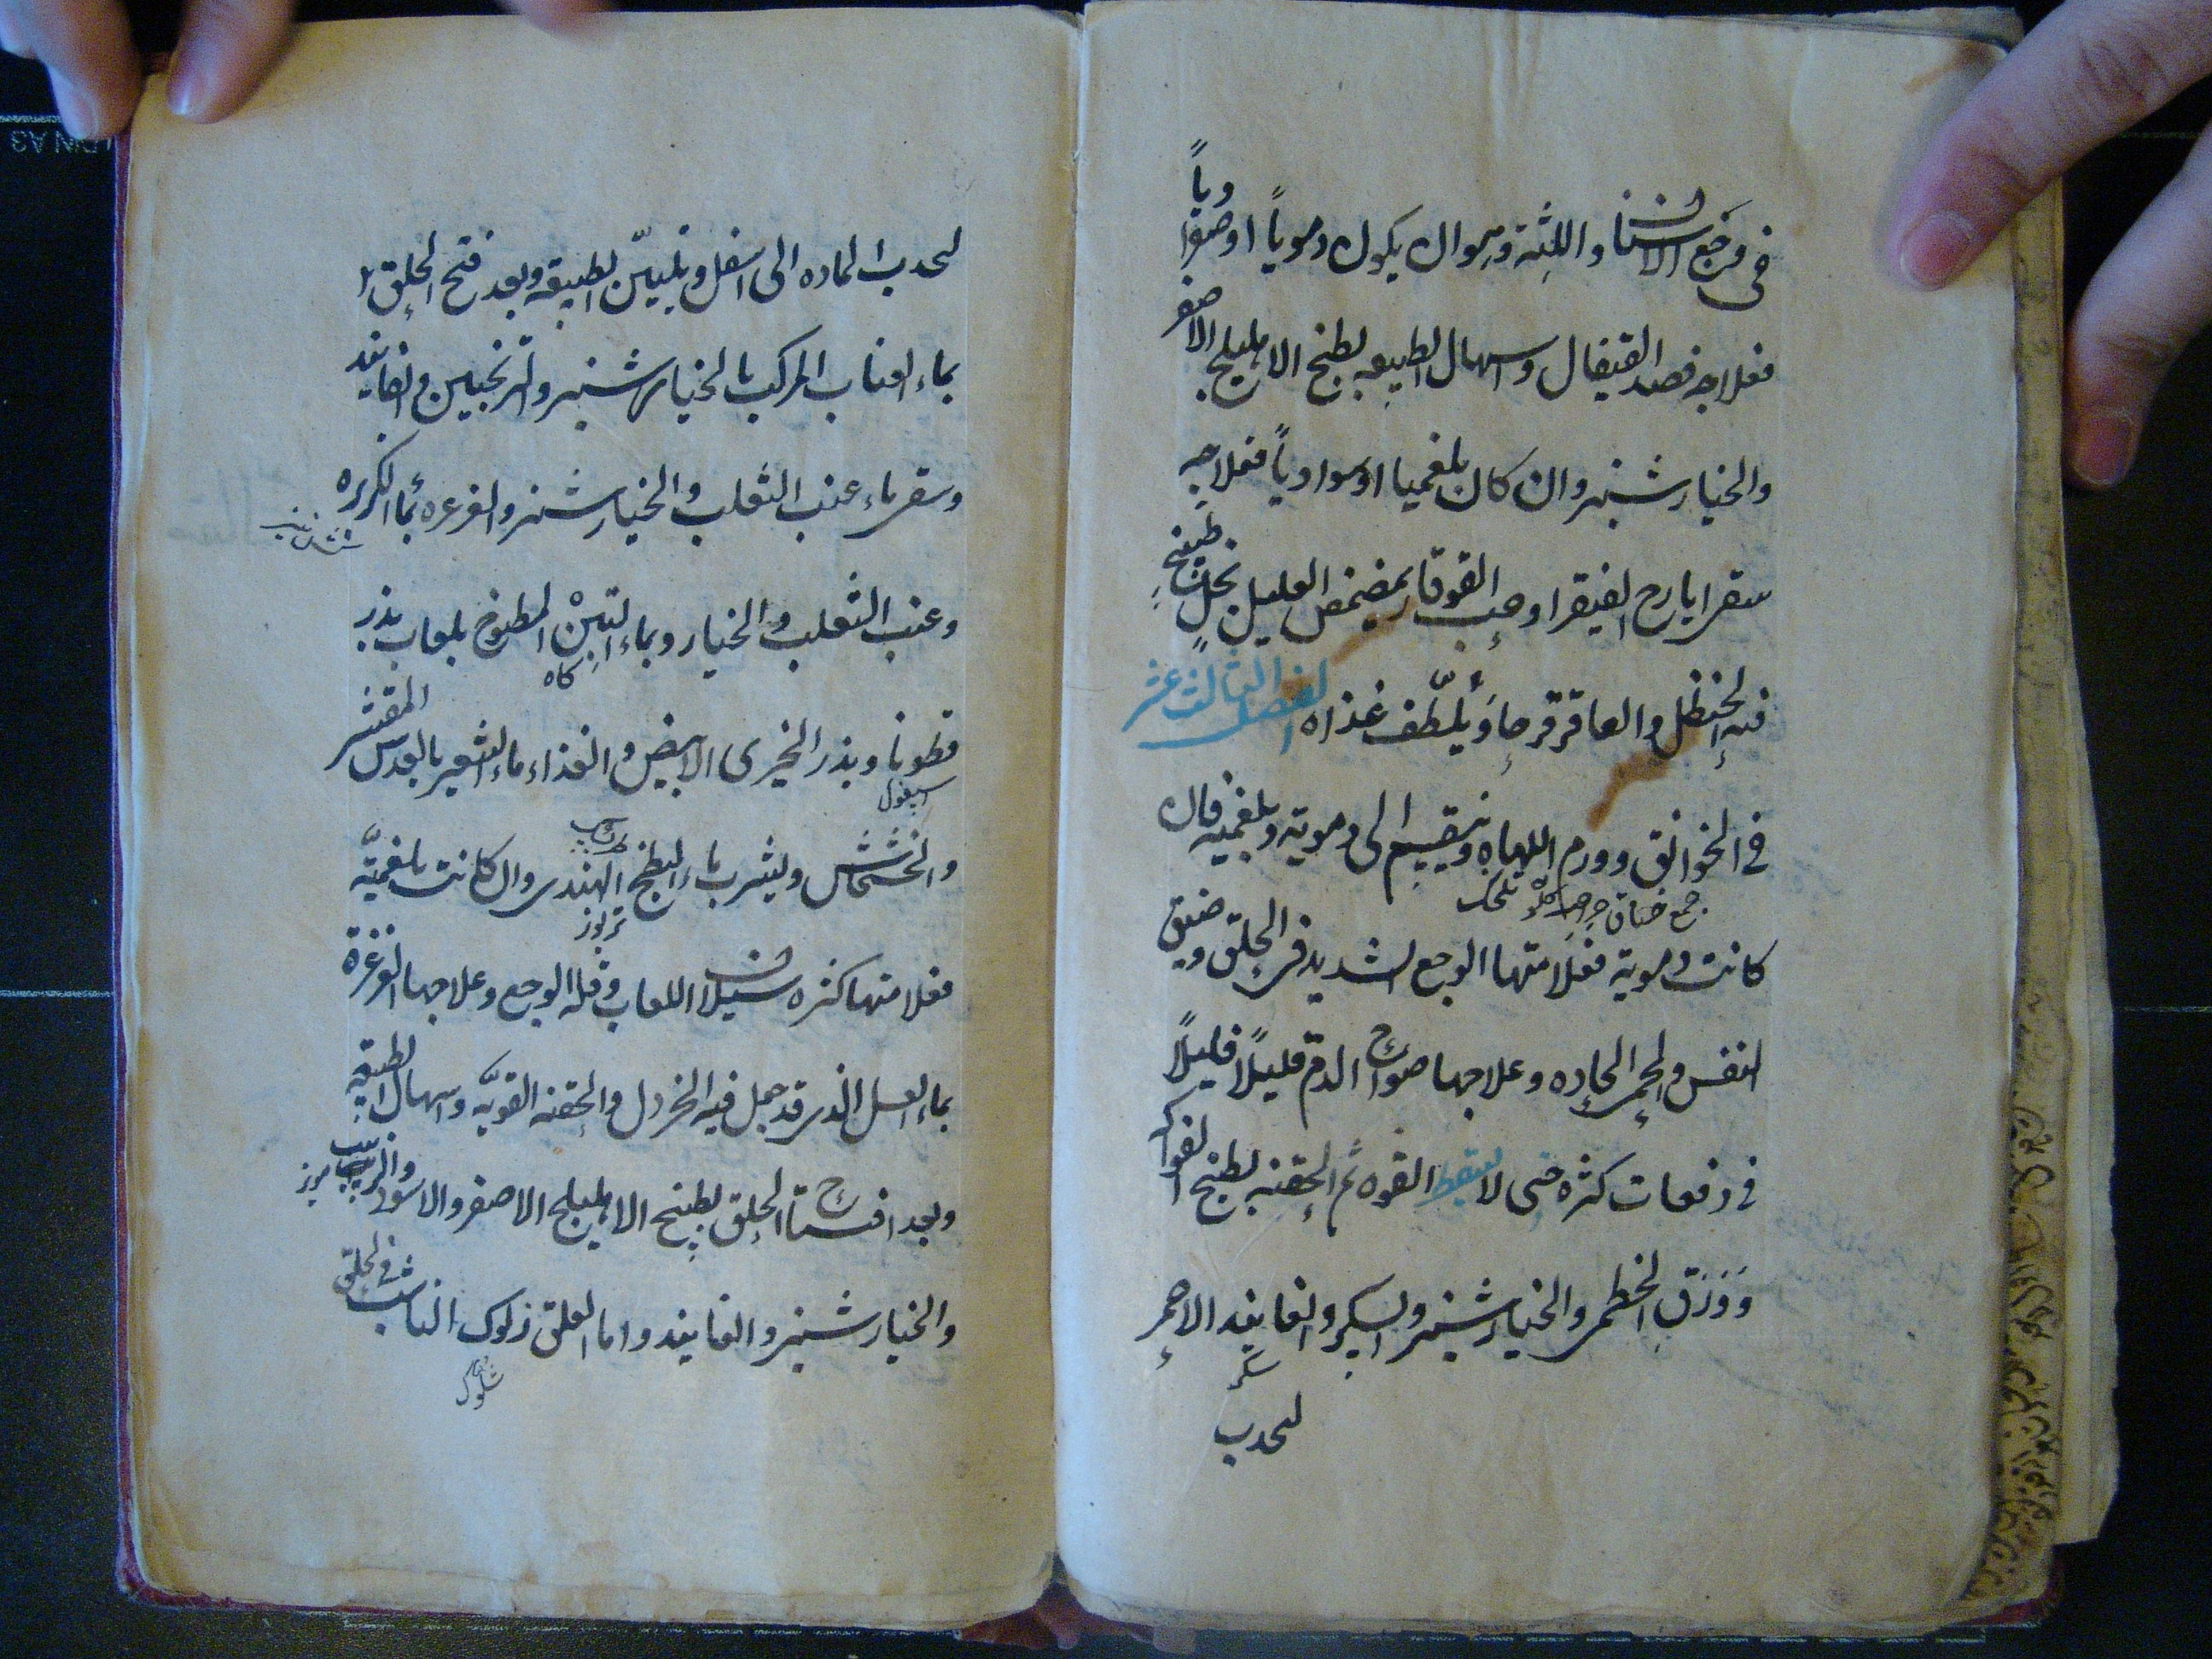 في وجع الاسنان واللثة وهو ان يكون دموياً او صفراوياً
فعلاجه فصد القيفال واسهال الطبيعه بطبخ الاهليلج الاصفر
والخيار شنبر وان كان بلغميا او سوداوياً فعلاجه
سقى ايارج الفيقرا او حب القوقايا يمضمض العليل بخل طبخ
فيه الحنظل والعاقرقرحا ويُلطّف غذاه الفصل الثالث عشر
في الخوانق وورم اللهاه وينقسم الى دموية وبلغميه فان
جمع خناق
كانت دموية فعلامتها الوجع الشديد في الحلق وضيق
النفس والحمى الحاده وعلاجها اخراج الدم قليلاً قليلاً
في دفعات كثره حتى لا يسقط القوه ثم الحقنه بطبخ الفواكه
وَوَرَق الخطمى والخيار شنبر والسكر والفانيد الاحمر
سكر
لتحدب
لتحدب الماده الى اسفل وتليّن الطبيعه وبعد فتح الحلق
بماء العناب المركب بالخيار شنبر والترنجبين والفانيد
وسقى ماء عنب الثعلب والخيار شنبر والغرغره بماء الكزبره
وعنب الثعلب والخيار وبماء التبن المطبوخ بلعاب بذر
كاه
قطونا وبذر الخيرى الابيض والغذاء ماء الشعير بالعدس المقشر
اسبغول
والخشخاش ويشرب ماء البطيخ الهندى وان كانت بلغميّه
تربوز
فعلامتها كثره سيلان اللعاب وقله الوجع وعلاجها الغرغرة
بماء العسل الذى قد جعل فيه الخردل والحقنه القويّه واسهال الطبيعه
وبعد افتتاح الحلق بطبخ الاهليلج الاصفر والاسود والزبيب
والخيار شنبر والفانيد واما العلق زلوک الناشب في الحلق